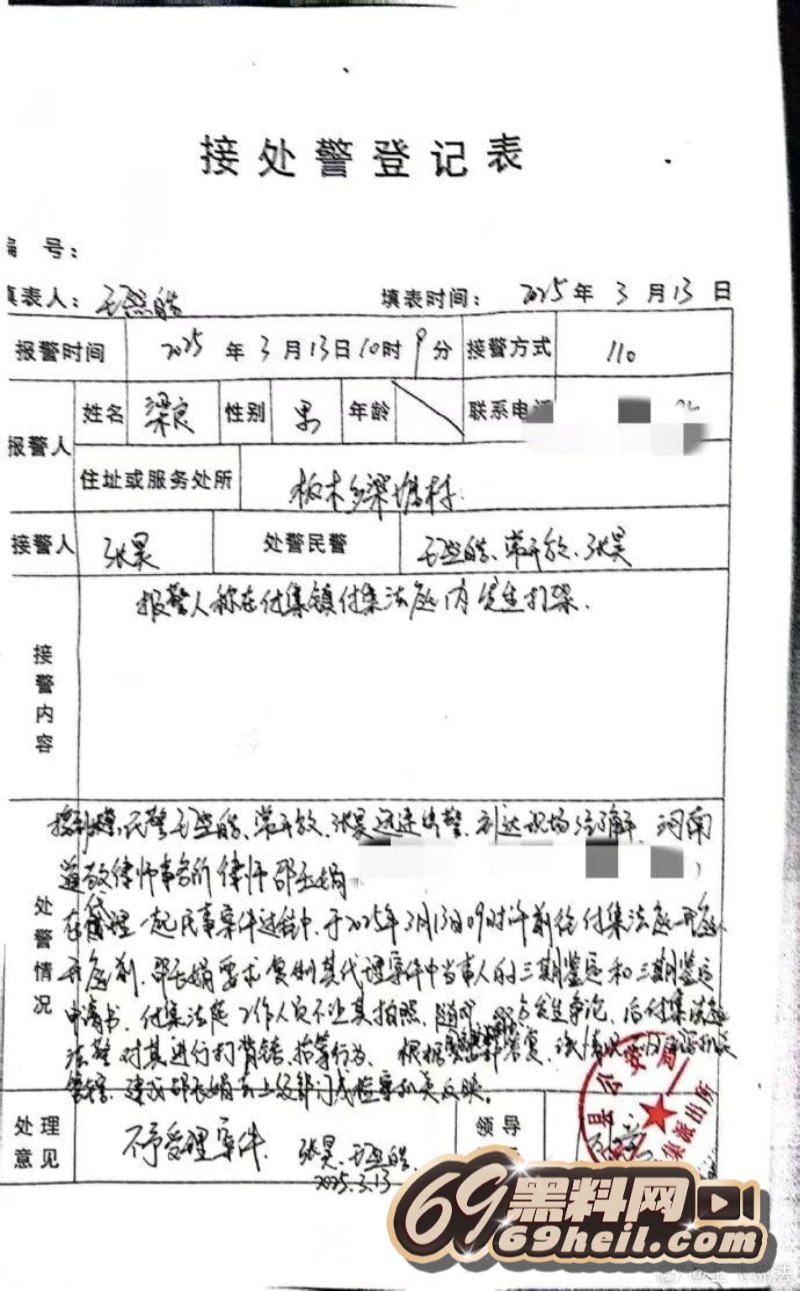 接处警登记表
编 号：
填表人： 填表时间： 2025 年 3 月 13 日
报警时间 2025 年 3 月 13 日 10 时 9 分 接警方式 110
报警人 姓名 梁良 性别 男 年龄 联系电话
住址或服务处所 板木乡梁塘村
接警人 张昊 处警民警 常开放、张昊
接警内容
报警人称在付集镇付集法庭内发生打架.
处警情况
接到报警，民警 常开放、张昊迅速出警，到达现场经了解，河南
道敬律师事务所律师邵
在代理一起民事案件过程中，于2025年3月13日09时许前往付集法庭开庭，
开庭前，邵 娟要求复制其代理案件中当事人的三期鉴定和三期鉴定
申请书，付集法庭工作人员不让其拍照，随后双方发生争论，后付集法庭
法警对其进行打背铐、掐等行为， 根据
管辖，建议邵 娟去上级部门或检察机关反映。
处理意见 不予受理案件. 张昊、 领导
2025.3.13
县公安局 镇派出所
69黑料网
69heil.com